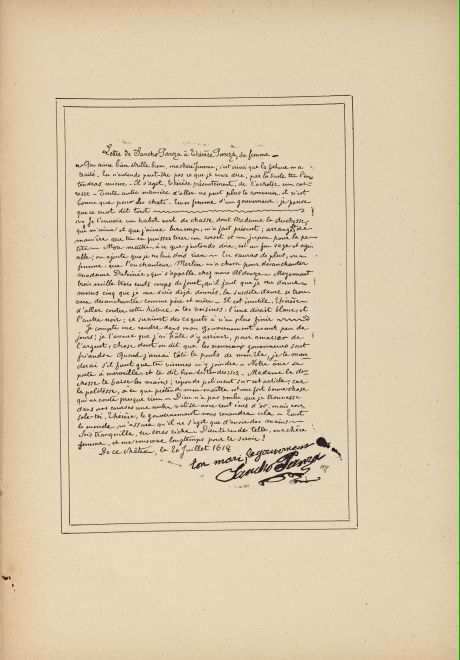 Lettre de Sancho Panza à Thérèse Panza, sa femme
« Qui aime bien étrille bien, ma chère femme, c'est ainsi que la fortune m'a
traité. Tu n'entends peut-être pas ce que je veux dire, par la suite tu l'en
tendras mieux. Il s'agit, Thérèse présentement, de t'acheter un car
rosse. Toute autre manière d'aller ne peut plus te convenir, et n'est
bonne que pour les chats. Tu es femme d'un gouverneur; je pense
que ce mot dit tout
Je t'envoie un habit vert de chasse, dont Madame la duchesse,
qui m'aime et que j'aime beaucoup, m'a fait présent; arrange-le de
manière que tu en puisses tirer un corset et un jupon pour la pe
tite. Mon maître, à ce que j'entends dire, est un fou sage et agré
able; on ajoute que je ne lui dois rien. Tu sauras de plus, ma
femme, que l'enchanteur Merlin m'a choisi pour désenchanter
madame Dulcinée, qui s'appelle chez nous Aldonza. Moyennant
trois mille trois cents coups de fouet, qu'il faut que je me donne
moins cinq que je me suis déjà donnés, la susdite dame se trou
vera désenchantée comme père et mère. Il est inutile, Thérèse
d'aller conter cette histoire à tes voisines: l'une dirait blanc, et
l'autre noir; ce seraient des caquets à n'en plus finir
Je compte me rendre dans mon gouvernement avant peu de
jours; je t'avoue que j'ai hâte d'y arriver, pour amasser de
l'argent, chose dont on dit que les nouveaux gouverneurs sont
friands. Quand j'aurai tâté le pouls de mon île, je te man
derai s'il faut que tu viennes m'y joindre. Notre âne se
porte à merveille et te dit bien des tendresses. Madame la du
chesse te baise les mains; réponds poliment sur cet article, car
la politesse, à ce que prétend mon maître est une fort bonne chose
qui ne coûte presque rien. Dieu n'a pas voulu que je trouvasse
dans nos courses une autre valise avec cent écus d'or, mais con
sole-toi, Thérèse, le gouvernement nous revaudra cela. Tout
le monde m'assure qu'il ne s'agit que d'avoir des mains.
Sois tranquille, tu seras riche. Dieu te rende telle, ma chère
femme, et me conserve longtemps pour te servir!
De ce château, le 20 Juillet 1614
Ton mari, le gouverneur
Sancho Panza